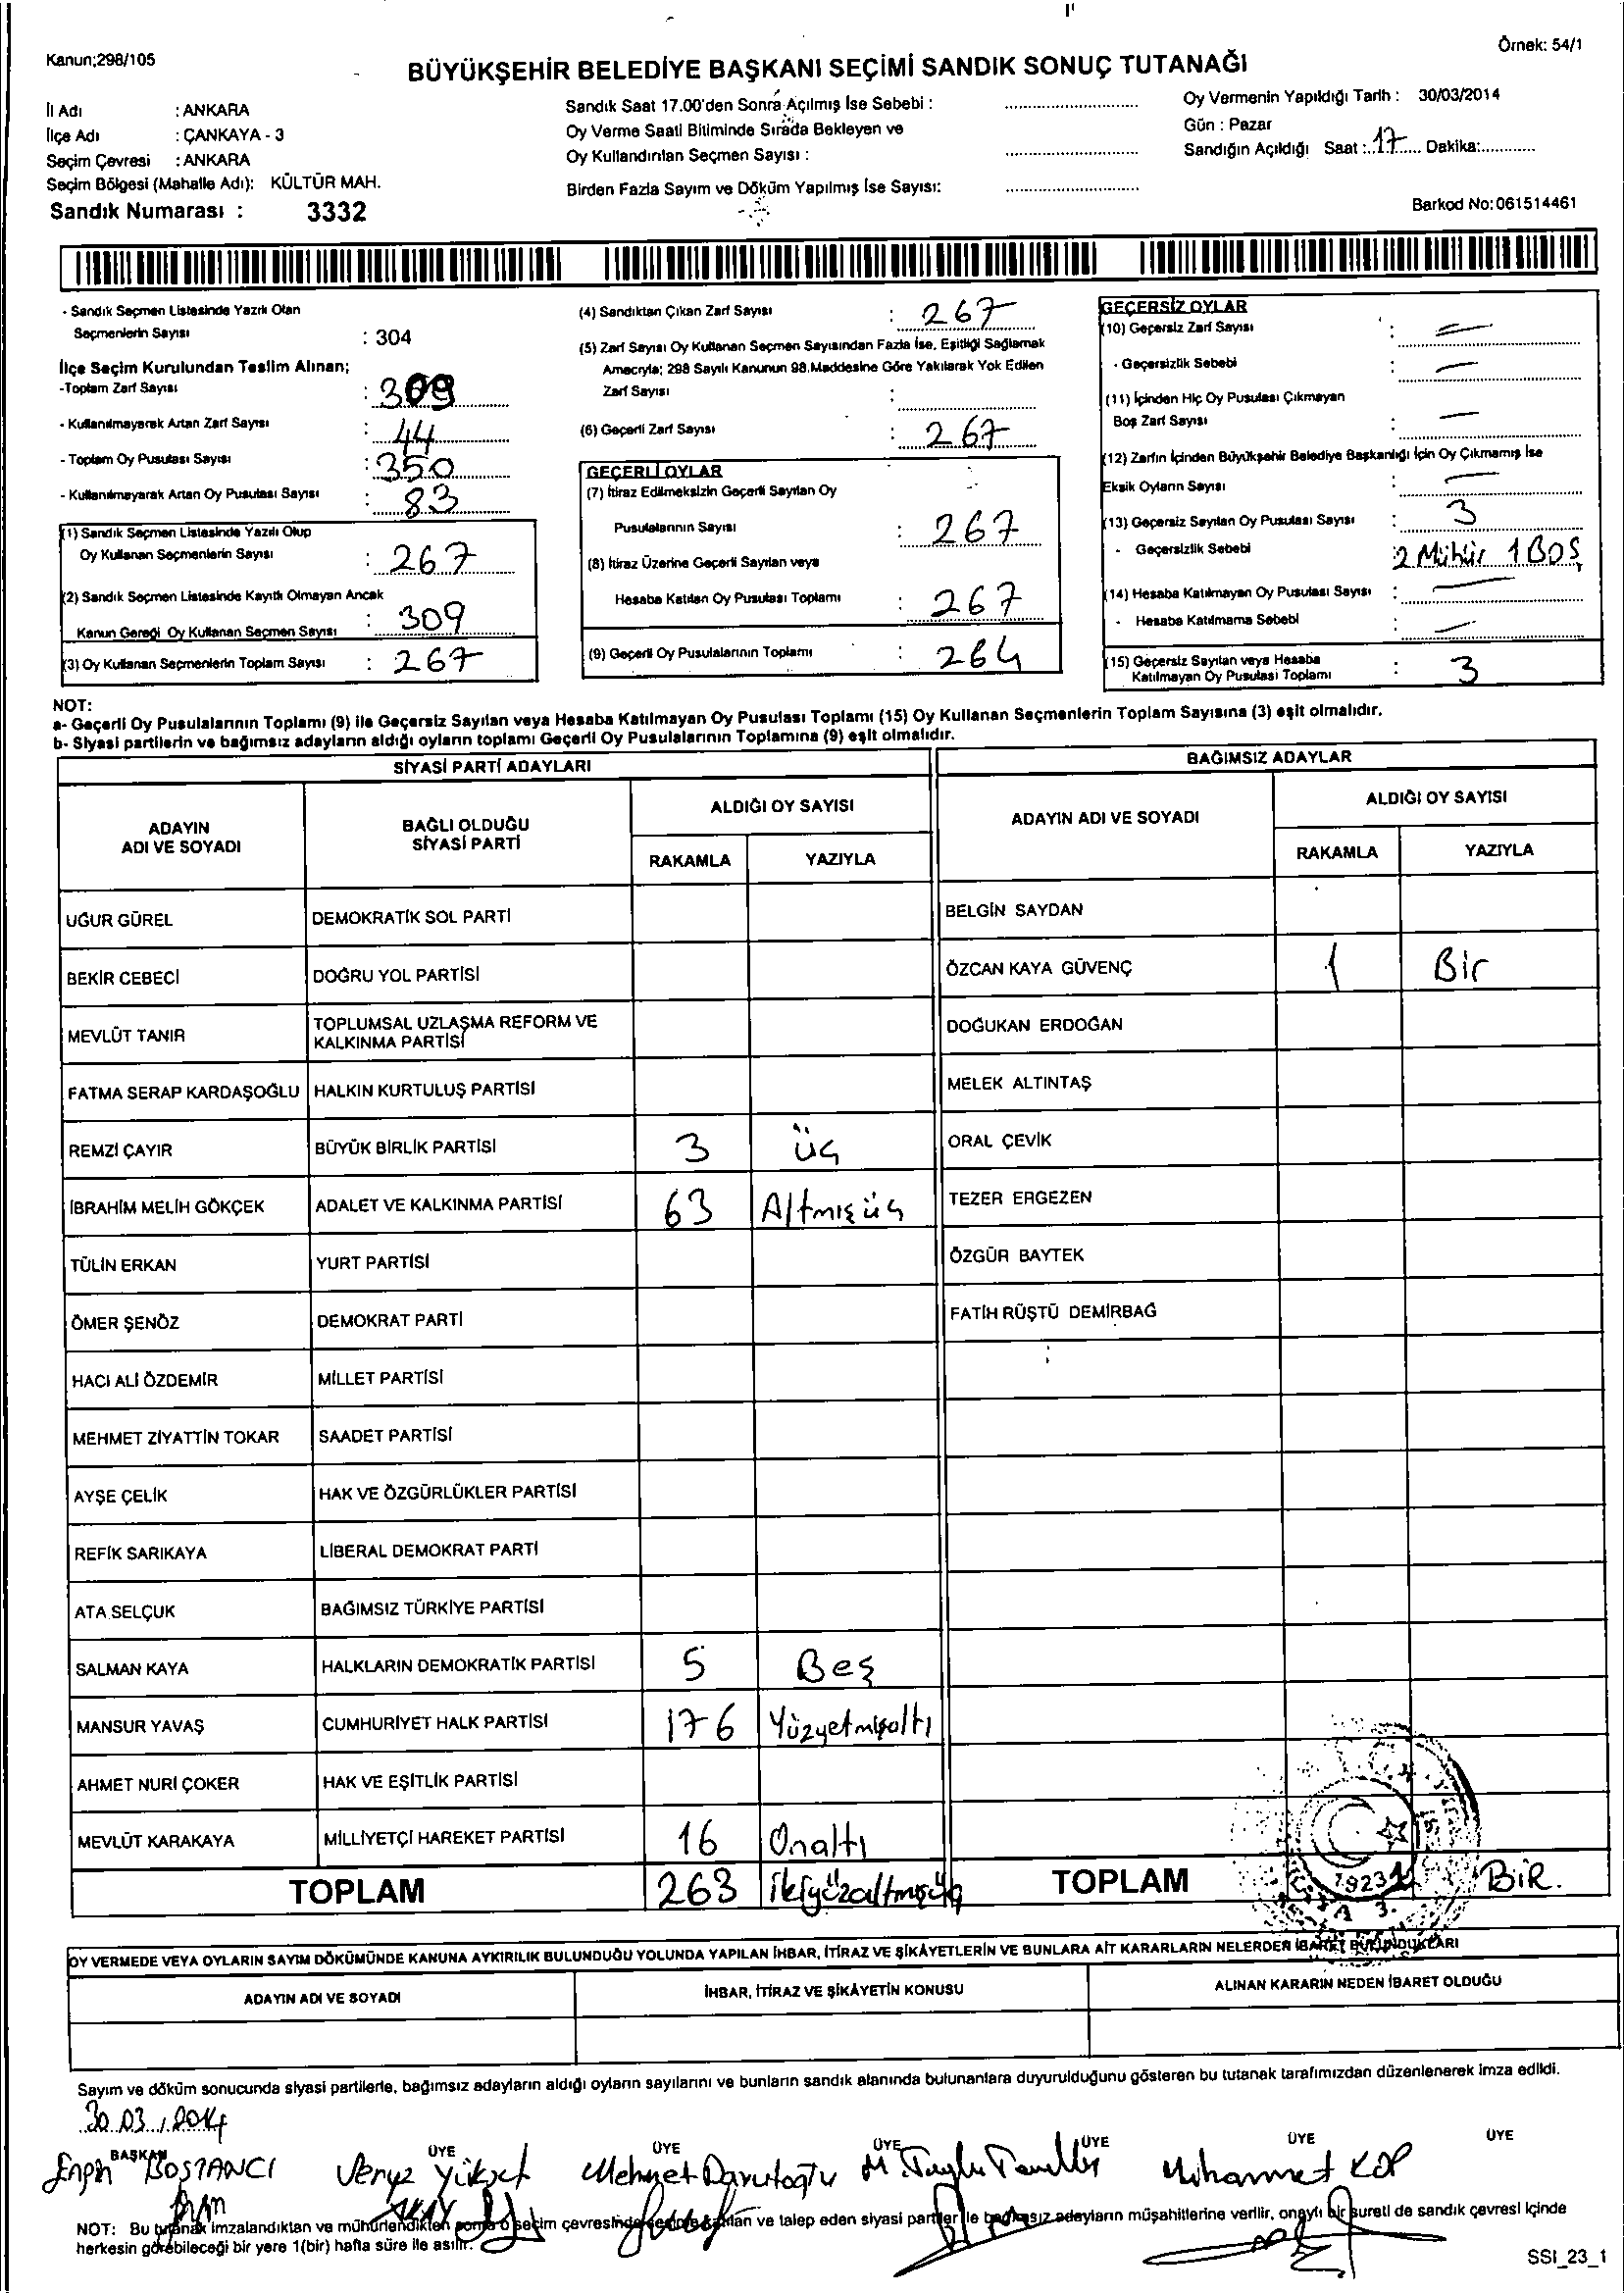 Kanun;298/105
Örnek: 54/1
BÜYÜKŞEHİR BELEDİYE BAŞKANI SEÇİMİ SANDIK SONUÇ TUTANAĞI
İl Adı : ANKARA
İlçe Adı : ÇANKAYA - 3
Seçim Çevresi : ANKARA
Seçim Bölgesi (Mahalle Adı): KÜLTÜR MAH.
Sandık Numarası : 3332
Sandık Saat 17.00'den Sonra Açılmış İse Sebebi :
Oy Verme Saati Bitiminde Sırada Bekleyen ve
Oy Kullandırılan Seçmen Sayısı :
Birden Fazla Sayım ve Döküm Yapılmış İse Sayısı:
Oy Vermenin Yapıldığı Tarih : 30/03/2014
Gün : Pazar
Sandığın Açıldığı Saat : 17 Dakika:
Barkod No:061514461
- Sandık Seçmen Listesinde Yazılı Olan
Seçmenlerin Sayısı : 304
İlçe Seçim Kurulundan Teslim Alınan;
-Toplam Zarf Sayısı : 309
- Kullanılmayarak Artan Zarf Sayısı : 44
- Toplam Oy Pusulası Sayısı : 350
- Kullanılmayarak Artan Oy Pusulası Sayısı : 83
(1) Sandık Seçmen Listesinde Yazılı Olup
Oy Kullanan Seçmenlerin Sayısı : 267
(2) Sandık Seçmen Listesinde Kayıtlı Olmayan Ancak
Kanun Gereği Oy Kullanan Seçmen Sayısı : 309
(3) Oy Kullanan Seçmenlerin Toplam Sayısı : 267
(4) Sandıktan Çıkan Zarf Sayısı : 267
(5) Zarf Sayısı Oy Kullanan Seçmen Sayısından Fazla İse, Eşitliği Sağlamak
Amacıyla; 298 Sayılı Kanunun 98.Maddesine Göre Yakılarak Yok Edilen
Zarf Sayısı :
(6) Geçerli Zarf Sayısı : 267
GEÇERLİ OYLAR
(7) İtiraz Edilmeksizin Geçerli Sayılan Oy
Pusulalarının Sayısı : 267
(8) İtiraz Üzerine Geçerli Sayılan veya
Hesaba Katılan Oy Pusulası Toplamı : 267
(9) Geçerli Oy Pusulalarının Toplamı : 264
GEÇERSİZ OYLAR
(10) Geçersiz Zarf Sayısı : —
- Geçersizlik Sebebi : —
(11) İçinden Hiç Oy Pusulası Çıkmayan
Boş Zarf Sayısı : —
(12) Zarfın İçinden Büyükşehir Belediye Başkanlığı İçin Oy Çıkmamış İse
Eksik Oyların Sayısı : —
(13) Geçersiz Sayılan Oy Pusulası Sayısı : 3
- Geçersizlik Sebebi 2 Mühür 1 BOŞ
(14) Hesaba Katılmayan Oy Pusulası Sayısı : —
- Hesaba Katılmama Sebebi : —
(15) Geçersiz Sayılan veya Hesaba
Katılmayan Oy Pusulası Toplamı : 3
NOT:
a- Geçerli Oy Pusulalarının Toplamı (9) ile Geçersiz Sayılan veya Hesaba Katılmayan Oy Pusulası Toplamı (15) Oy Kullanan Seçmenlerin Toplam Sayısına (3) eşit olmalıdır.
b- Siyasi partilerin ve bağımsız adayların aldığı oyların toplamı Geçerli Oy Pusulalarının Toplamına (9) eşit olmalıdır.
SİYASİ PARTİ ADAYLARI
ADAYIN ADI VE SOYADI
BAĞLI OLDUĞU SİYASİ PARTİ
ALDIĞI OY SAYISI
RAKAMLA YAZIYLA
UĞUR GÜREL DEMOKRATİK SOL PARTİ
BEKİR CEBECİ DOĞRU YOL PARTİSİ
MEVLÜT TANIR TOPLUMSAL UZLAŞMA REFORM VE KALKINMA PARTİSİ
FATMA SERAP KARDAŞOĞLU HALKIN KURTULUŞ PARTİSİ
REMZİ ÇAYIR BÜYÜK BİRLİK PARTİSİ 3 üç
İBRAHİM MELİH GÖKÇEK ADALET VE KALKINMA PARTİSİ 63 Altmışüç
TÜLİN ERKAN YURT PARTİSİ
ÖMER ŞENÖZ DEMOKRAT PARTİ
HACI ALİ ÖZDEMİR MİLLET PARTİSİ
MEHMET ZİYATTİN TOKAR SAADET PARTİSİ
AYŞE ÇELİK HAK VE ÖZGÜRLÜKLER PARTİSİ
REFİK SARIKAYA LİBERAL DEMOKRAT PARTİ
ATA SELÇUK BAĞIMSIZ TÜRKİYE PARTİSİ
SALMAN KAYA HALKLARIN DEMOKRATİK PARTİSİ 5 Beş
MANSUR YAVAŞ CUMHURİYET HALK PARTİSİ 176 Yüzyetmişaltı
AHMET NURİ ÇOKER HAK VE EŞİTLİK PARTİSİ
MEVLÜT KARAKAYA MİLLİYETÇİ HAREKET PARTİSİ 16 Onaltı
TOPLAM 263 İkiyüzaltmışüç
BAĞIMSIZ ADAYLAR
ADAYIN ADI VE SOYADI
ALDIĞI OY SAYISI
RAKAMLA YAZIYLA
BELGİN SAYDAN
ÖZCAN KAYA GÜVENÇ 1 Bir
DOĞUKAN ERDOĞAN
MELEK ALTINTAŞ
ORAL ÇEVİK
TEZER ERGEZEN
ÖZGÜR BAYTEK
FATİH RÜŞTÜ DEMİRBAĞ
TOPLAM 1 BİR.
OY VERMEDE VEYA OYLARIN SAYIM DÖKÜMÜNDE KANUNA AYKIRILIK BULUNDUĞU YOLUNDA YAPILAN İHBAR, İTİRAZ VE ŞİKÂYETLERİN VE BUNLARA AİT KARARLARIN NELERDEN İBARET BULUNDUKLARI
ADAYIN ADI VE SOYADI
İHBAR, İTİRAZ VE ŞİKÂYETİN KONUSU
ALINAN KARARIN NEDEN İBARET OLDUĞU
Sayım ve döküm sonucunda siyasi partilerle, bağımsız adayların aldığı oyların sayılarını ve bunların sandık alanında bulunanlara duyurulduğunu gösteren bu tutanak tarafımızdan düzenlenerek imza edildi.
30.03./2014
BAŞKAN ÜYE ÜYE ÜYE ÜYE ÜYE ÜYE
Engin BOSTANCI Yükset Mehmet Davutoğlu Muhammet KOP
NOT: Bu tutanak imzalandıktan ve mühürlendikten sonra o seçim çevresinde seçime katılan ve talep eden siyasi partiler ile bağımsız adayların müşahitlerine verilir, onaylı bir sureti de sandık çevresi içinde
herkesin görebileceği bir yere 1(bir) hafta süre ile asılır.
SSI_23_1